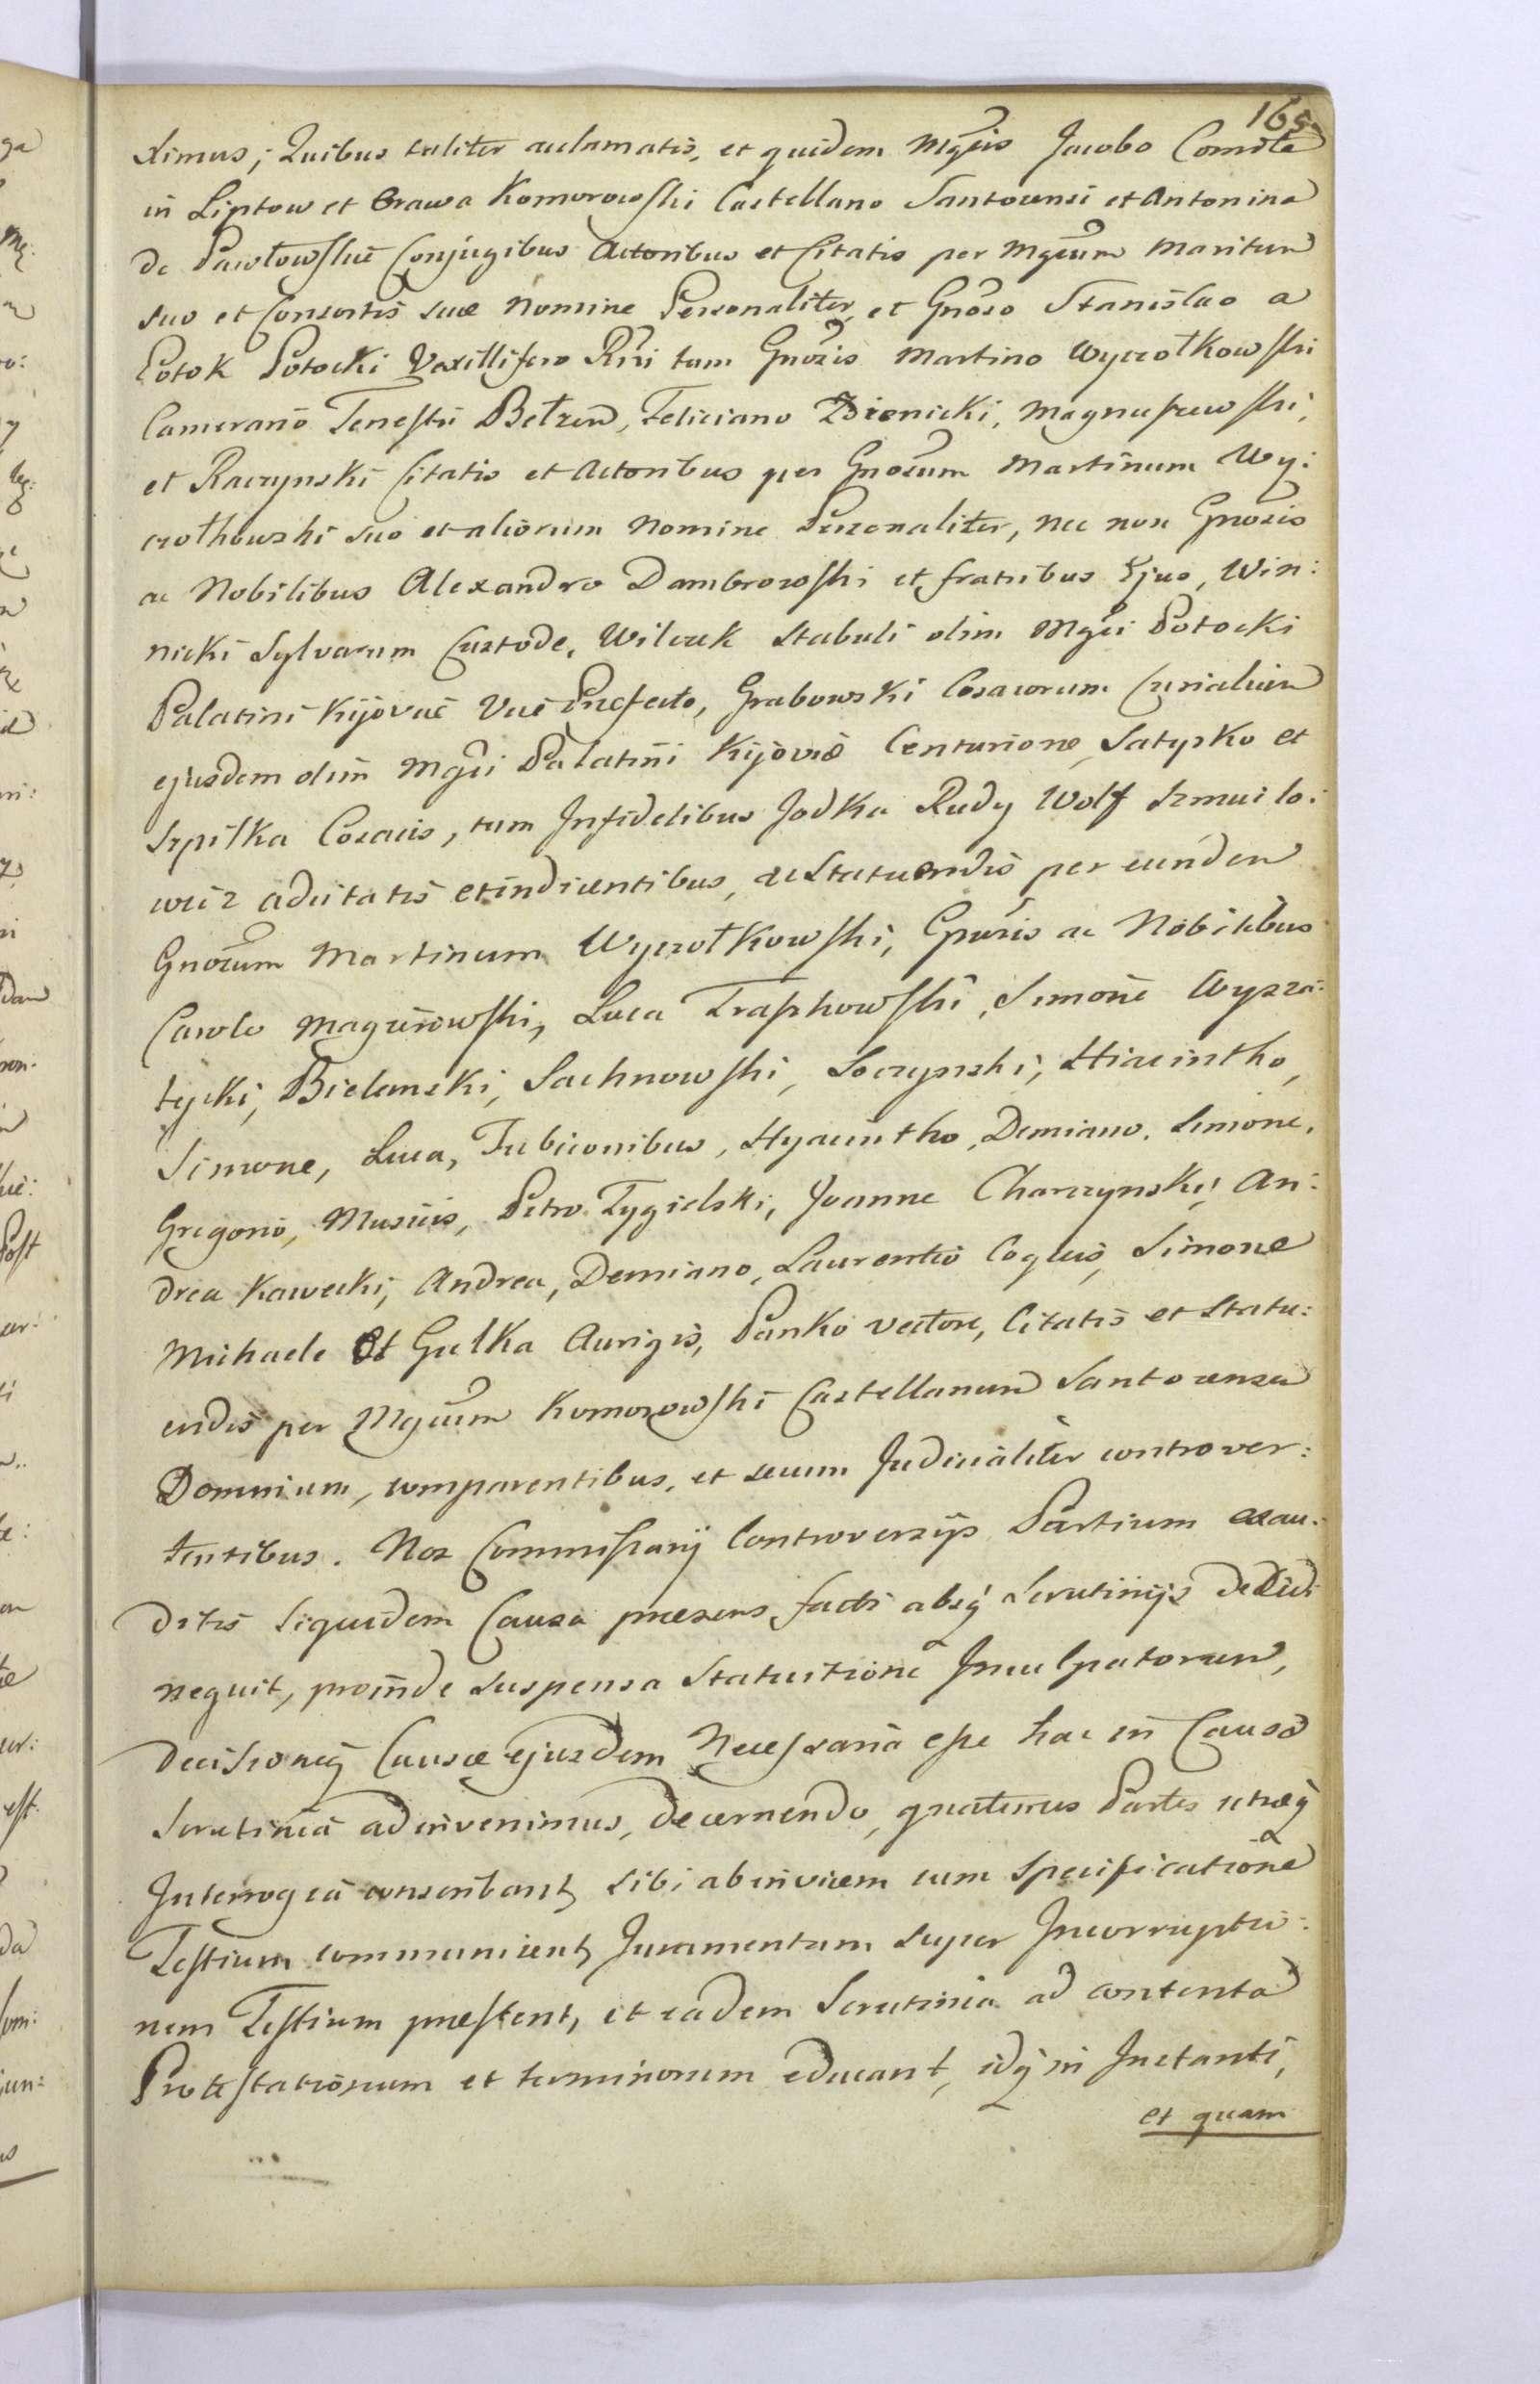 165
ximus; Quibus taliter acclamatis, et quidem Mgcis Jacobo Comite
in Liptow et Orawa Komorowski Castellano Santocensi et Antonina
de Pawłowskie Conjugibus Actoribus et Citatis per Mgcum Maritum
suo et Consortis suæ Nomine Personaliter, et Gnoso Stanislao a
Potok Potocki Vexillifero Rni tum Gnosis Martino Wyczołkowski
Camerario Terrestri Belzen, Feliciano Zbienicki, Magnuszewski,
et Raczynski Citatis et Actoribus per Gnosum Martinum Wy:
czołkowski suo et aliorum Nomine Personaliter, nec non Gnosis
ac Nobilibus Alexandro Dambrowski et fratribus Ejus, Win:
nicki Sylvarum Custode, Wilczek Stabuli olim Mgci Potocki
Palatini Kijoviæ Vice Præfecto, Grabowski Cosacorum Curialium
ejusdem olim Mgci Palatini Kijoviæ Centurione, Satysko et
Szpilka Cosacis, tum Infidelibus Jodka Rudy Wolf Szmuilo:
wicz adcitatis et indicentibus, ac Statuendis per eundem
Gnosum Martinum Wyczołkowski, Gnosis ac Nobilibus
Carolo Magierowski, Luca Traszkowski, Simone Wyszo:
tycki, Bielanski, Sachnowski, Soczynski, Hiacintho,
Simone, Luca, Tubiconibus, Hyacintho, Demiano, Simone,
Gregorio, Musicis, Petro Tygielski, Joanne Charczynski, An:
drea Kawecki, Andrea, Demiano, Laurentio Coquis, Simone
Michaele et Gulka Aurigis, Panko vectore, Citatis et Statu:
endis per Mgcum Komorowski Castellanum Santocensem
Dominum, comparentibus, et secum Judicialiter controver:
tentibus. Nos Commissarij Controversijs Partium exau:
ditis siquidem Causa præsens facti absq Scrutinijs decidi
nequit, proinde suspensa Statuitione Inculpatorum,
decisioneq Causæ ejusdem Necessaria esse hac in Causa
Scrutinia adinvenimus, decernendo, quatenus Partes utræq
Interrogria conscribant, sibi abinvicem cum Specificatione
Testium communicent, Juramentum super Incorruptio:
nem Testium præstent, et eadem Scrutinia ad contenta
Protestationum et terminorum educant, idq in Instanti,
et quam